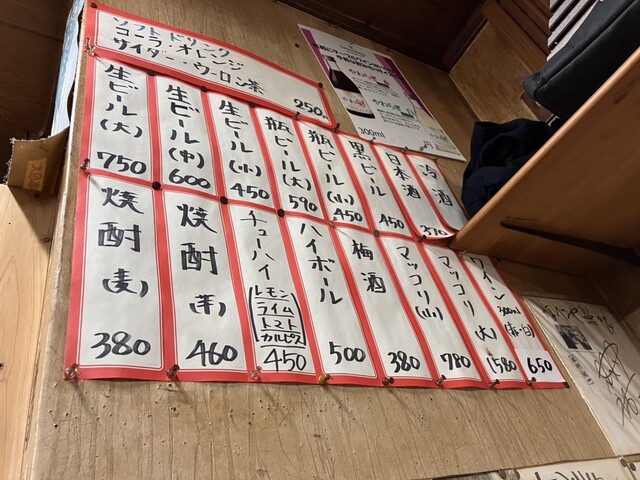 ソフトドリンク
コーラ・オレンジ
サイダー・ウーロン茶
250
生ビール(大)
750
生ビール(中)
600
生ビール(小)
450
瓶ビール(大)
590
瓶ビール(小)
450
黒ビール
450
日本酒
冷酒
370
焼酎(麦)
380
焼酎(芋)
460
チューハイ
レモン
ライム
トマト
カルピス
450
ハイボール
500
梅酒
380
マッコリ(小)
780
マッコリ(大)
1580
ワイン
300ml
(赤・白)
650
300ml